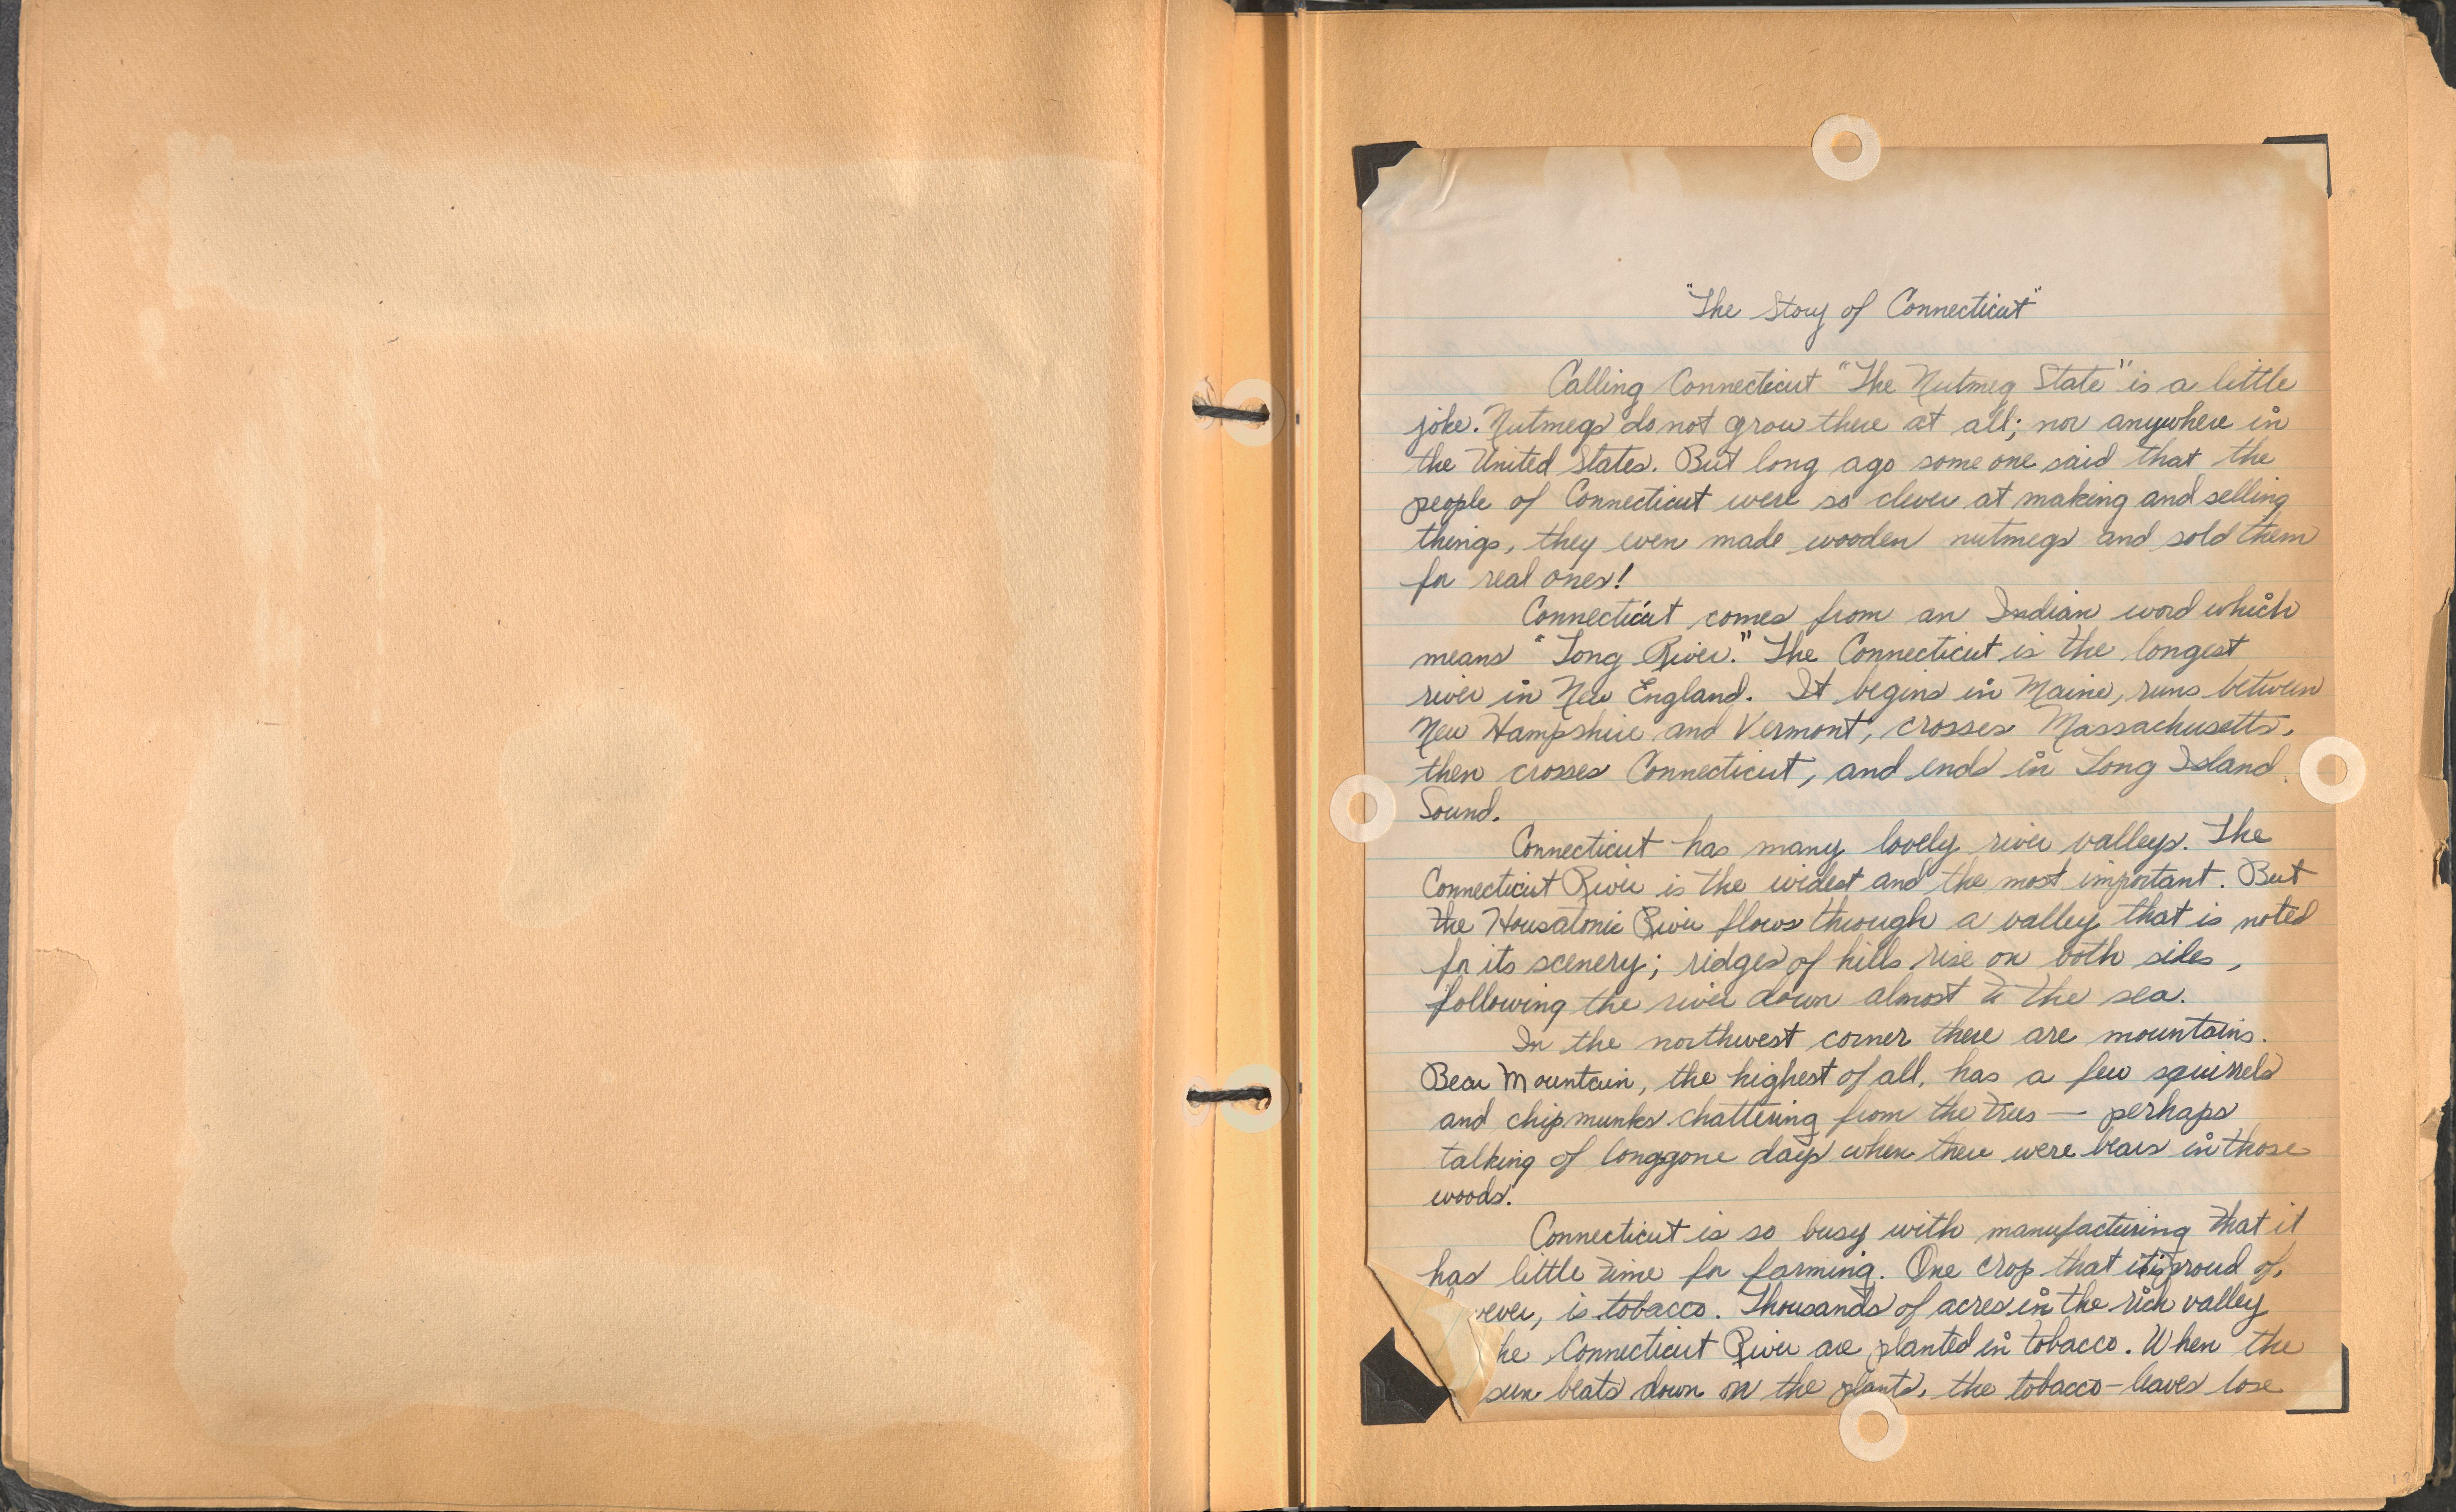 "The Story of Connecticut"
Calling Connecticut "The Nutmeg State" is a little
joke. Nutmegs do not grow there at all; nor anywhere in
the United States. But long ago some one said that the
people of Connecticut were so clever at making and selling
things, they even made wooden nutmegs and sold them
for real ones!
Connecticut comes from an Indian word which
means "Long River." The Connecticut is the longest
river in New England. It begins in Maine, runs between
New Hampshire and Vermont, crosses Massachusetts,
then crosses Connecticut, and ends in Long Island
Sound.
Connecticut has many lovely river valleys. The
Connecticut River is the widest and the most important. But
the Housatonic River flows through a valley that is noted
for its scenery; ridges of hills rise on both sides,
following the river down almost to the sea.
In the northwest corner there are mountains.
Bear Mountain, the highest of all, has a few squirrels
and chipmunks chattering from the trees — perhaps
talking of longgone days when there were bears in those
woods.
Connecticut is so busy with manufacturing that it
has little time for farming. One crop that it is proud of,
ever, is tobacco. Thousands of acres in the rich valley
he Connecticut River are planted in tobacco. When the
sun beats down on the plants, the tobacco-leaves lose